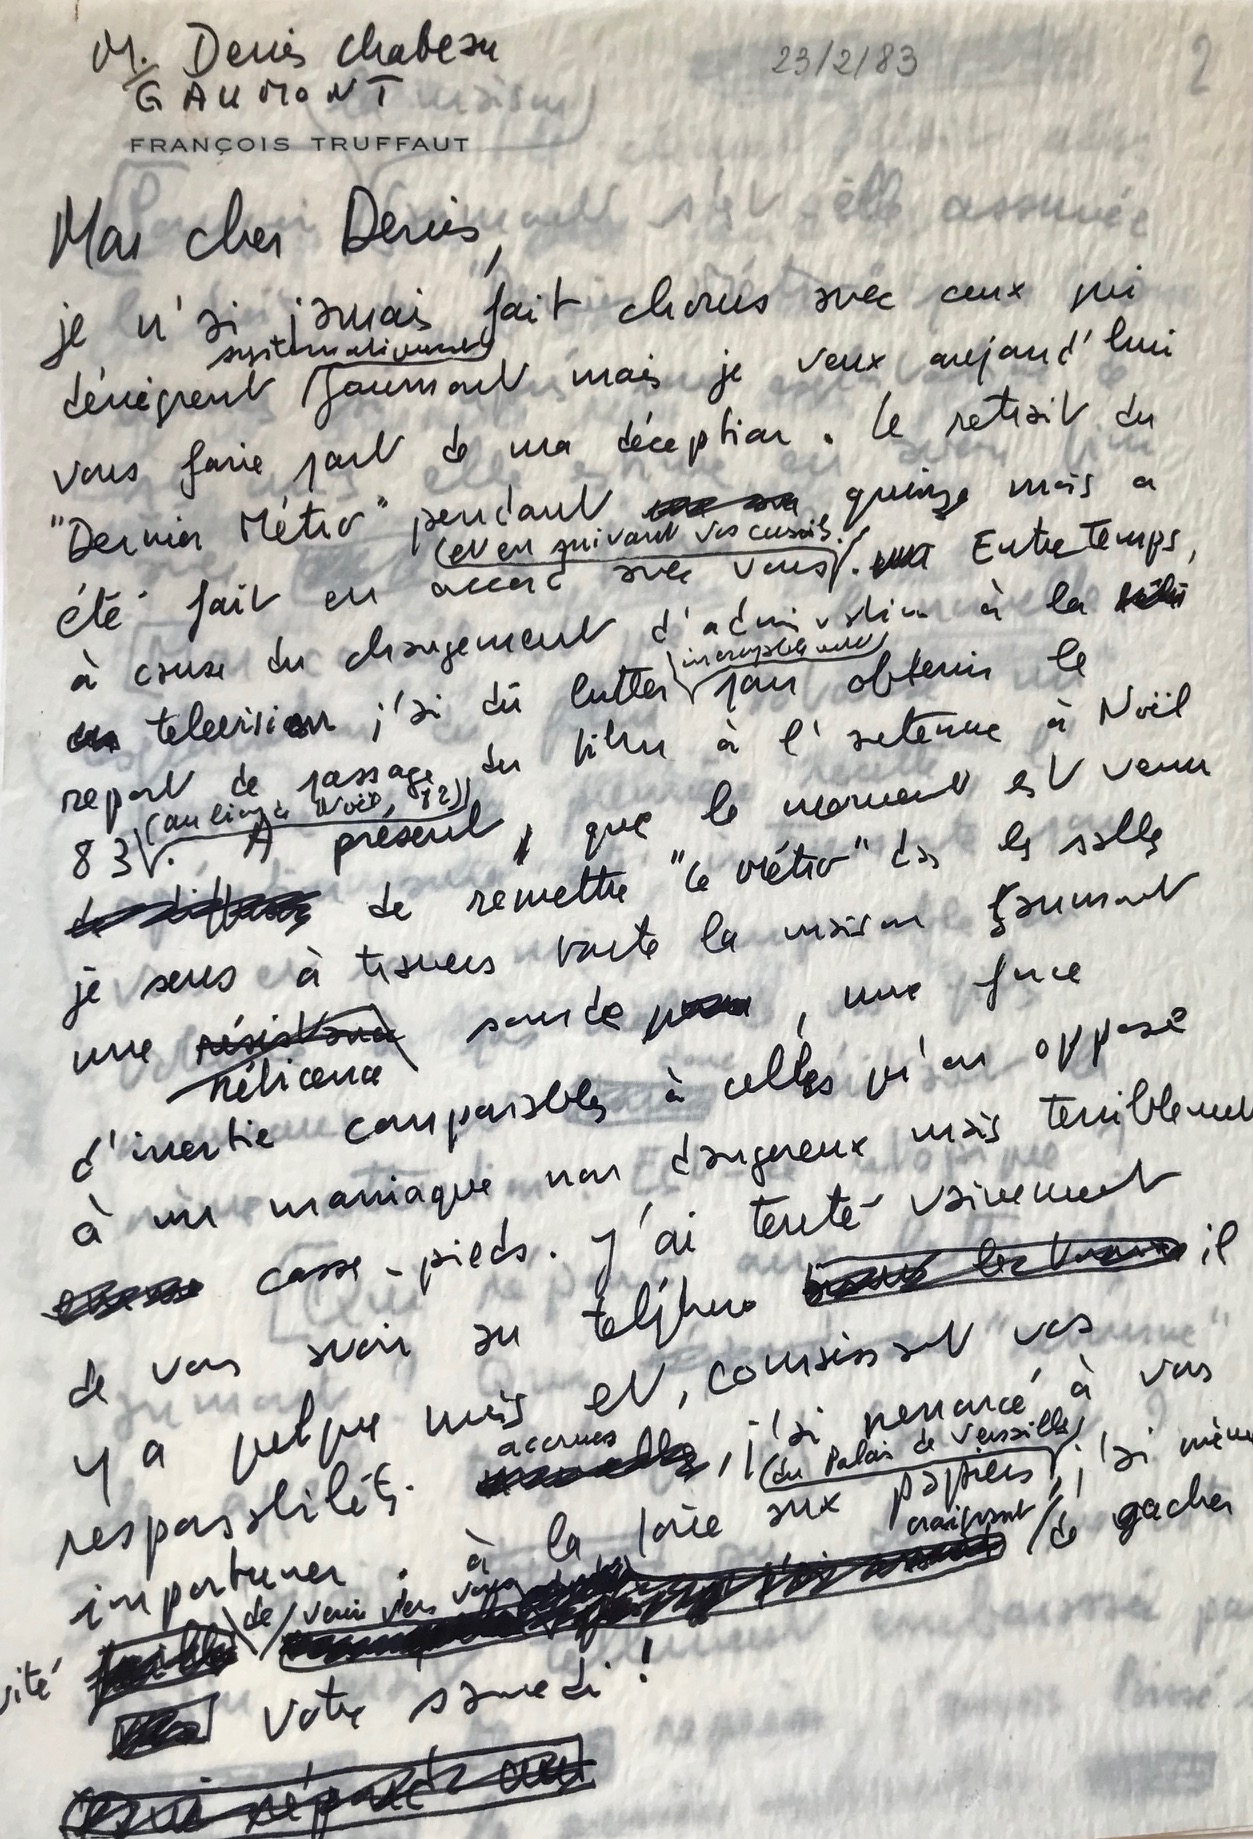 M. Denis Chateau
23/2/83
2
GAUMONT
FRANÇOIS TRUFFAUT
Mon cher Denis,
je n'ai jamais fait chorus avec ceux qui
systématiquement
dénigrent Gaumont mais je veux aujourd'hui
vous faire part de ma déception. Le retrait du
"Dernier Métro" pendant quinze mois a
(et en suivant vos conseils)
été fait en accord avec vous. Entre Temps,
à cause du changement d'administration à la
incroyablement
television j'ai dû lutter pour obtenir le
report de passage du film à l'antenne à Noël
(au lieu de Noël, 82)
83. A présent, que le moment est venu
de remettre "le Métro" ds les salles
je sens à travers toute la maison Gaumont
une résistance sourde, une force
réticence
d'inertie comparables à celles qu'on oppose
à un maniaque non dangereux mais terriblement
casse-pieds. J'ai tenté vainement
de vous avoir au téléphone il
y a quelques mois et, connaissant vos
accrues
responsabilités, j'ai renoncé à vous
(du Palais de Versailles)
importuner. à la foire aux papiers, j'ai même
craignant
évité de venir vers vous de gacher
votre samedi!